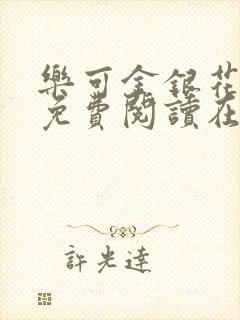 樂可金銀花
免費閱讀在
許光達